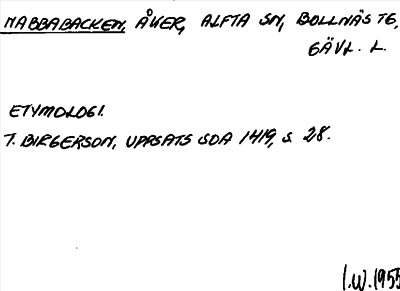 NABBABACKEN, ÅKER, ALFTA SN, BOLLNÄS TG,
GÄVL. L.
ETYMOLOGI.
T. BIRGERSON, UPPSATS SOA 1419, S. 28.
I.W. 1955